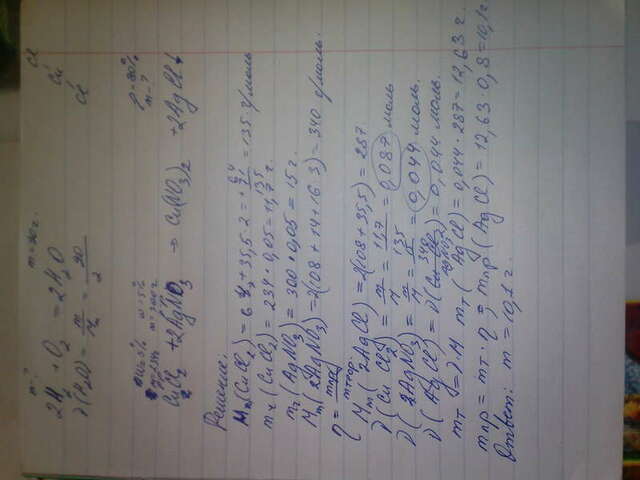 m-? m=90г.
2H₂ + O₂ = 2H₂O
ν(H₂O) = m/Mm = 90/2
Cl
Cu
Cl
w=5% w=5% η=80%
m=234г m=300г m-?
CuCl₂ + 2AgNO₃ → Cu(NO₃)₂ + 2AgCl↓
Решение:
Mm(CuCl₂) = 64 + 35,5·2 = 64 + 71 = 135 г/моль
mч(CuCl₂) = 234·0,05 = 11,7 г.
mч(AgNO₃) = 300·0,05 = 15г.
Mm(2AgNO₃) = 2(108 + 14 + 16·3) = 340 г/моль.
η = mпр/mтеор.
Mm(2AgCl) = 2(108 + 35,5) = 287
ν(CuCl₂) = m/M = 11,7/135 = 0,087 моль
ν(2AgNO₃) = m/M = 15/340 = 0,044 моль.
ν(AgCl) = ν(AgNO₃) = 0,044 моль.
mт = ν·M mт(AgCl) = 0,044·287 = 12,63 г.
mпр = mт·η; mпр(AgCl) = 12,63·0,8 = 10,1г
Ответ: m = 10,1г.